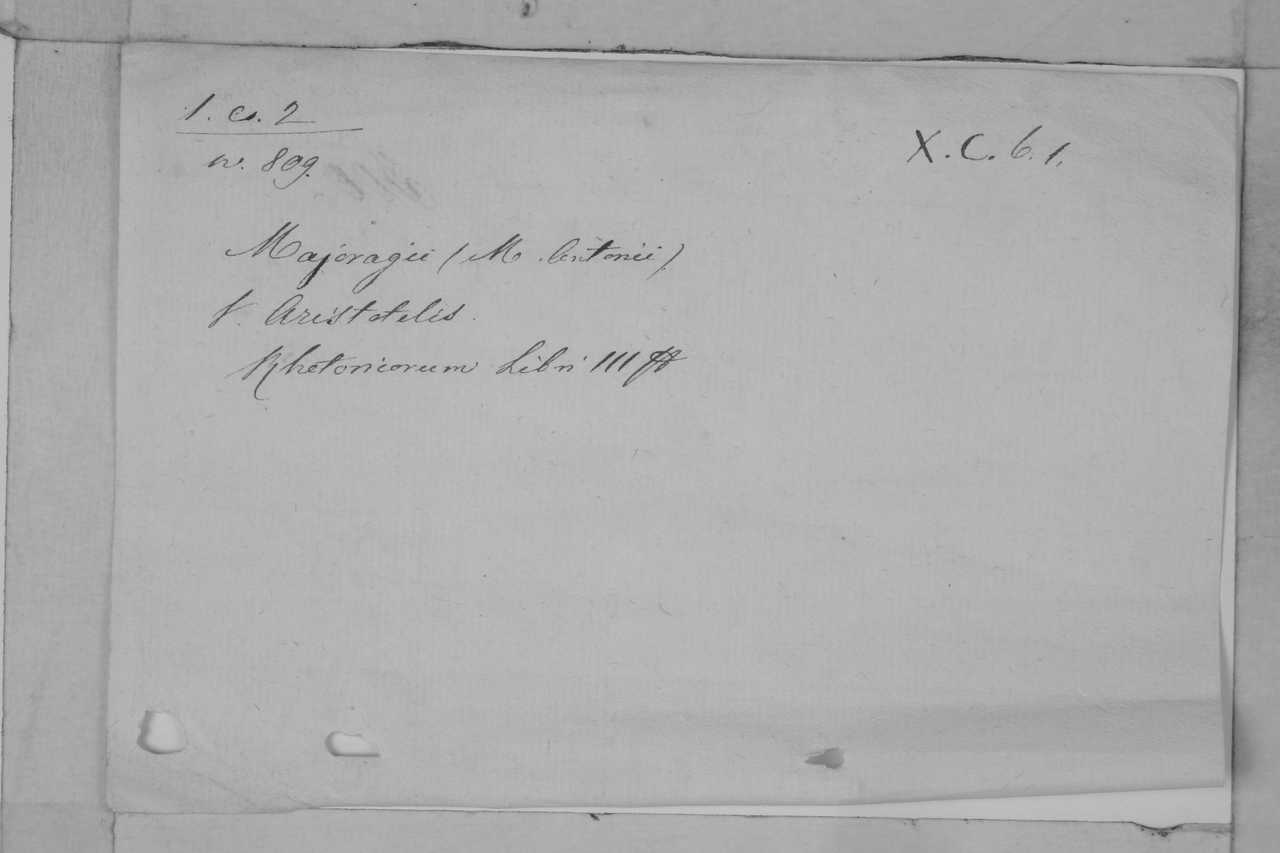 1. c. 2
X. C. 6. 1.
n. 809.
Majoragii (M. Antonii)
V. Aristotelis.
Rhetoricorum Libri III